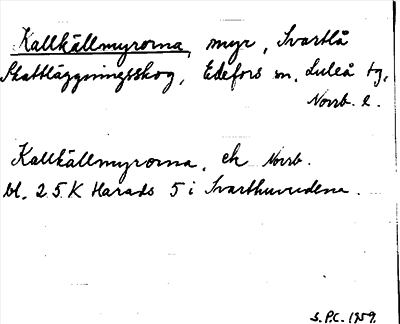 Kallkällmyrorna, myr, Svartlå
Skattläggningsskog, Edefors sn, Luleå tg,
Norrb. l.
Kallkällmyrorna, ek Norrb.
bl. 25 K Harads 5 i Svarthuvudena.
S.P.C. 1959.